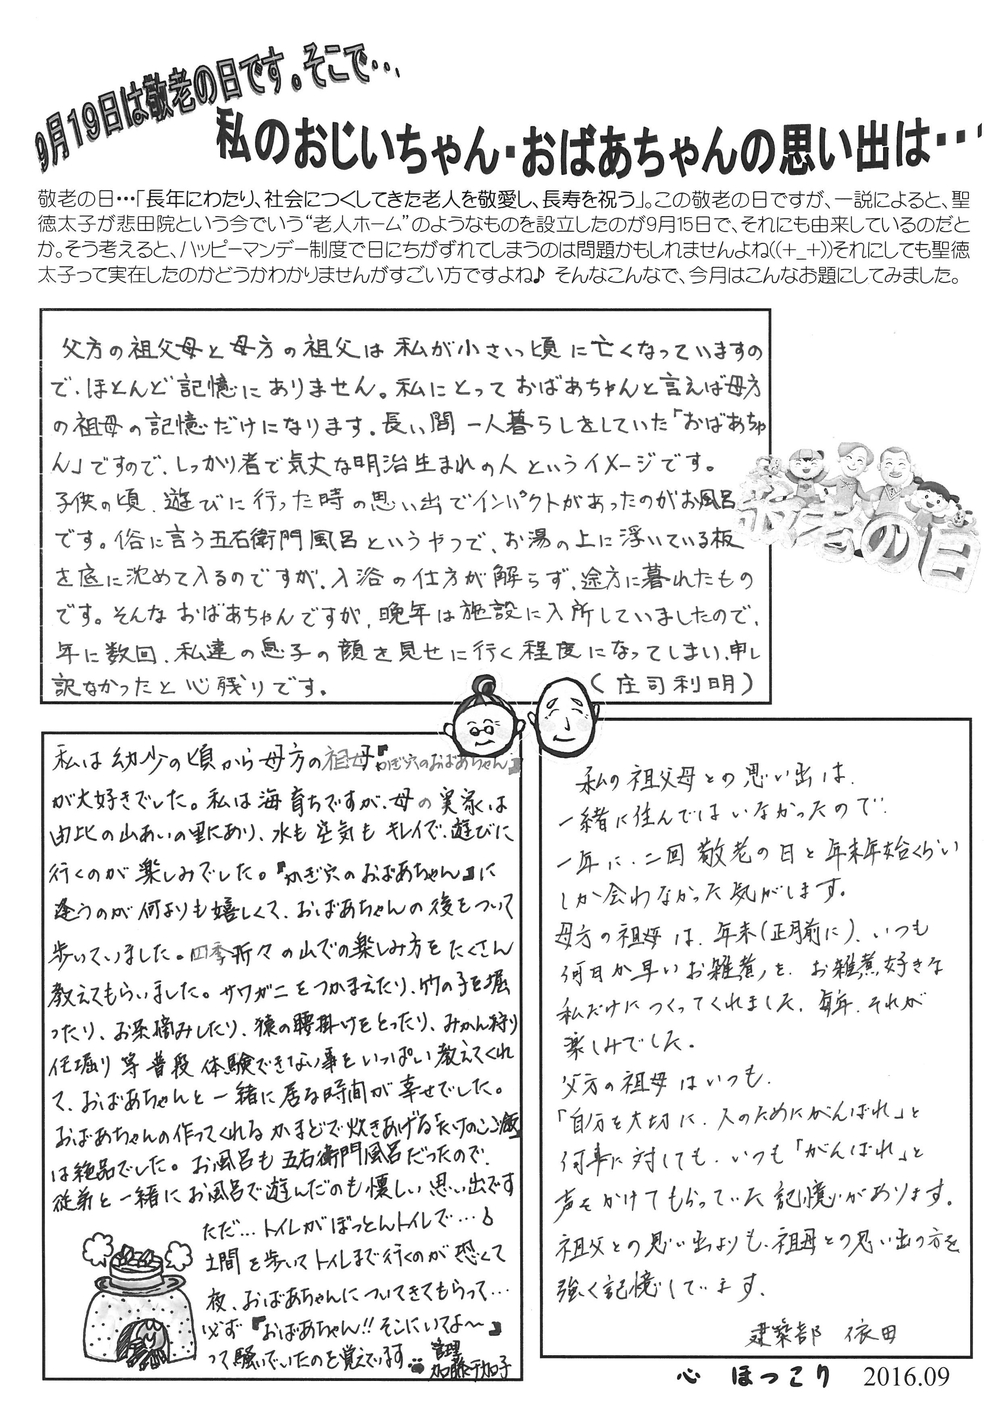 9月19日は敬老の日です。そこで・・・
私のおじいちゃん・おばあちゃんの思い出は・・・
敬老の日・・・「長年にわたり、社会につくしてきた老人を敬愛し、長寿を祝う」。この敬老の日ですが、一説によると、聖
徳太子が悲田院という今でいう“老人ホーム”のようなものを設立したのが9月15日で、それにも由来しているのだと
か。そう考えると、ハッピーマンデー制度で日にちがずれてしまうのは問題かもしれませんよね((+_+))それにしても聖徳
太子って実在したのかどうかわかりませんがすごい方ですよね♪ そんなこんなで、今月はこんなお題にしてみました。
父方の祖父母と母方の祖父は私が小さい頃に亡くなっていますの
で、ほとんど記憶にありません。私にとっておばあちゃんと言えば母方
の祖母の記憶だけになります。長い間一人暮らしをしていた「おばあちゃ
ん」ですので、しっかり者で気丈な明治生まれの人というイメージです。
子供の頃、遊びに行った時の思い出でインパクトがあったのがお風呂
です。俗に言う五右衛門風呂というやつで、お湯の上に浮いている板
を底に沈めて入るのですが、入浴の仕方が解らず、途方に暮れたもの
です。そんなおばあちゃんですが、晩年は施設に入所していましたので、
年に数回、私達の息子の顔を見せに行く程度になってしまい、申し
訳なかったと心残りです。 (庄司利明)
敬老の日
私は幼少の頃から母方の祖母『かぎ穴のおばあちゃん』
が大好きでした。私は海育ちですが、母の実家は
由比の山あいの里にあり、水も空気もキレイで、遊びに
行くのが楽しみでした。『かぎ穴のおばあちゃん』に
逢うのが何よりも嬉しくて、おばあちゃんの後をついて
歩いていました。四季折々の山での楽しみ方をたくさん
教えてもらいました。サワガニをつかまえたり、竹の子を掘
ったり、お茶摘みしたり、猿の腰掛けをとったり、みかん狩り
芋掘り等普段体験できない事をいっぱい教えてくれ
て、おばあちゃんと一緒に居る時間が幸せでした。
おばあちゃんの作ってくれるかまどで炊きあげるたけのこご飯
は絶品でした。お風呂も五右衛門風呂だったので、
従弟と一緒にお風呂で遊んだのも懐しい思い出です
ただ…トイレがぼっとんトイレで…
土間を歩いてトイレまで行くのが恐くて
夜、おばあちゃんについてきてもらって…
必ず『おばあちゃん!!そこにいてよ～』
って騒いでいたのを覚えています
管理
加藤千加子
私の祖父母との思い出は、
一緒に住んではいなかったので、
一年に、二回敬老の日と年末年始くらい
しか会わなかった気がします。
母方の祖母は、年末(正月前に)、いつも
何日か早いお雑煮を、お雑煮好きな
私だけにつくってくれました。毎年、それが
楽しみでした。
父方の祖母はいつも、
「自分を大切に、人のためにがんばれ」と
何事に対しても、いつも「がんばれ」と
声をかけてもらっていた記憶があります。
祖父との思い出よりも、祖母との思い出の方を
強く記憶しています。
建築部 依田
心 ほっこり 2016.09